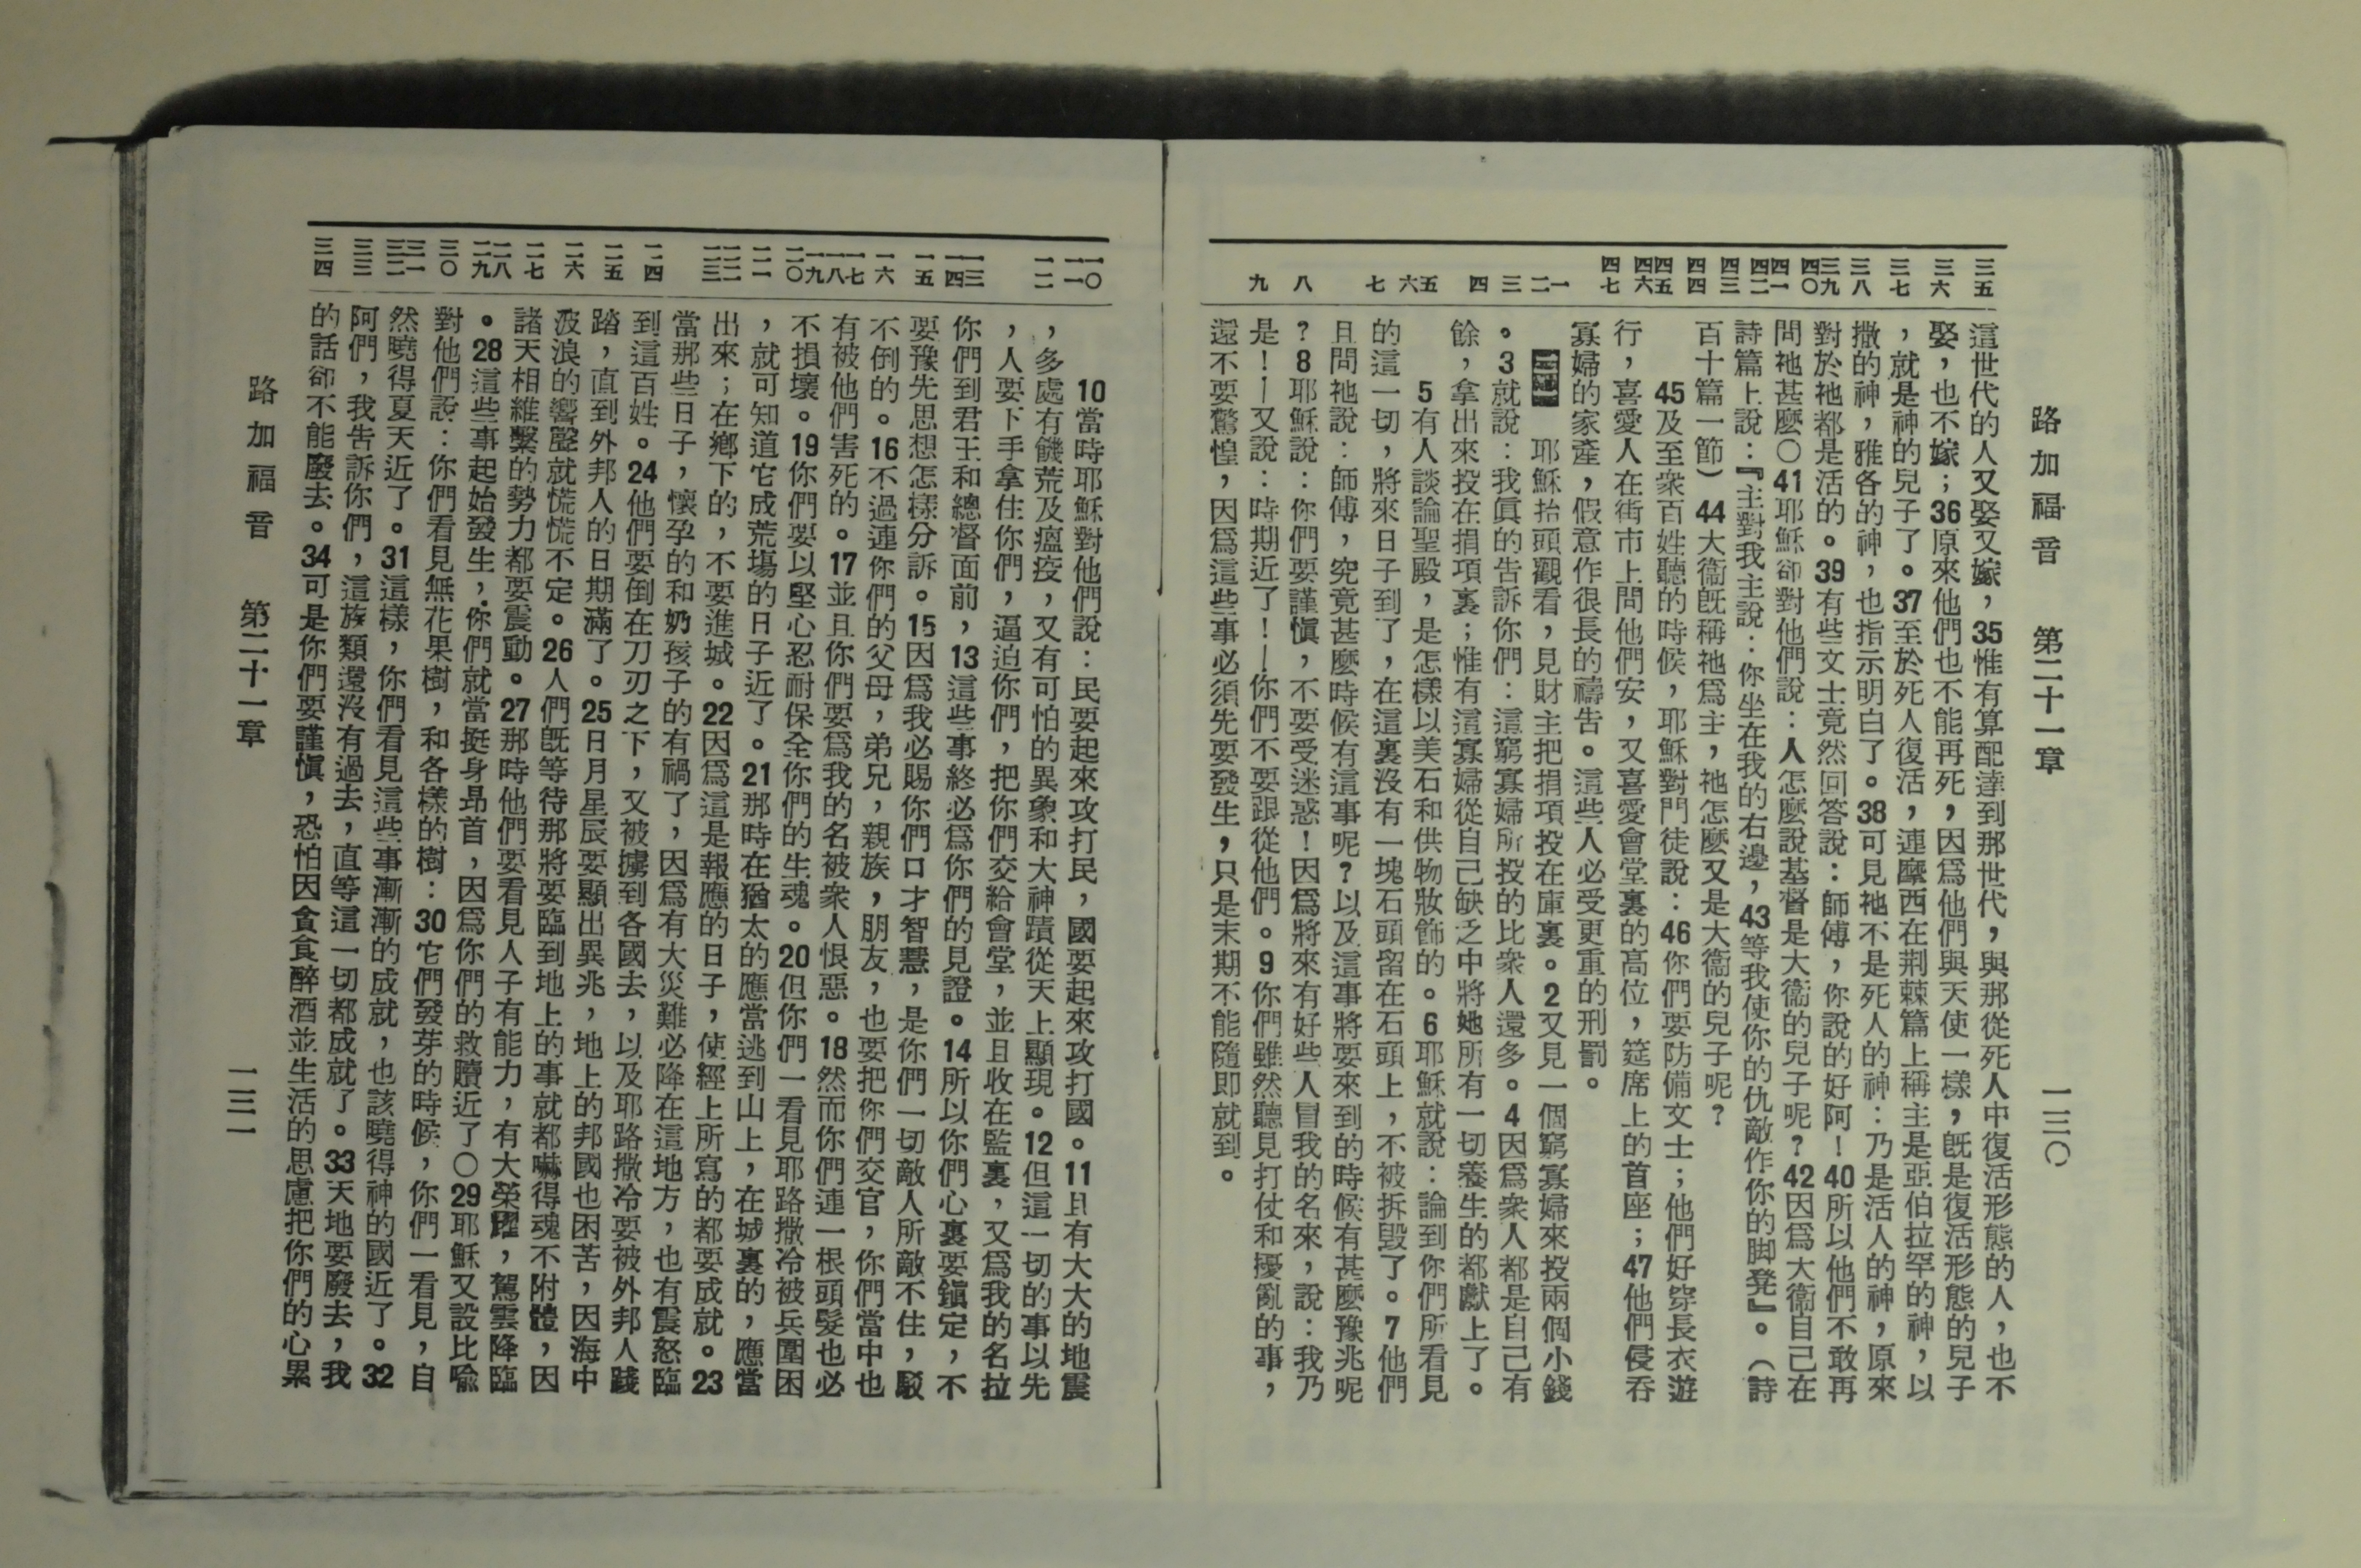 路加福音　第二十一章　一三〇
三五
三六
三七
三八
三九
四〇
四一
四二
四三
四四
四五
四六
四七
一
二
三
四
五
六
七
八
九
這世代的人又娶又嫁，35惟有算配達到那世代，與那從死人中復活形態的人，也不
娶，也不嫁；36原來他們也不能再死，因爲他們與天使一樣，旣是復活形態的兒子
，就是神的兒子了。37至於死人復活，連摩西在荆棘篇上稱主是亞伯拉罕的神，以
撒的神，雅各的神，也指示明白了。38可見祂不是死人的神：乃是活人的神，原來
對於祂都是活的。39有些文士竟然回答說：師傅，你說的好阿！40所以他們不敢再
問祂甚麼〇41耶穌卻對他們說：人怎麼說基督是大衞的兒子呢？42因爲大衞自己在
詩篇上說：『主對我主說：你坐在我的右邊，43等我使你的仇敵作你的脚凳』。（詩
百十篇一節）44大衞旣稱祂爲主，祂怎麼又是大衞的兒子呢？
45及至衆百姓聽的時候，耶穌對門徒說：46你們要防備文士；他們好穿長衣遊
行，喜愛人在街市上問他們安，又喜愛會堂裏的高位，筵席上的首座；47他們侵吞
寡婦的家產，假意作很長的禱告。這些人必受更重的刑罰。
耶穌抬頭觀看，見財主把捐項投在庫裏。2又見一個窮寡婦來投兩個小錢
。3就說：我眞的告訴你們：這窮寡婦所投的比衆人還多。4因爲衆人都是自己有
餘，拿出來投在捐項裏；惟有這寡婦從自己缺乏之中將她所有一切養生的都獻上了。
5有人談論聖殿，是怎樣以美石和供物妝飾的。6耶穌就說：論到你們所看見
的這一切，將來日子到了，在這裏沒有一塊石頭留在石頭上，不被拆毀了。7他們
且問祂說：師傅，究竟甚麼時候有這事呢？以及這事將要來到的時候有甚麼豫兆呢
？8耶穌說：你們要謹愼，不要受迷惑！因爲將來有好些人冒我的名來，說：我乃
是！—又說：時期近了！—你們不要跟從他們。9你們雖然聽見打仗和擾亂的事，
還不要驚惶，因爲這些事必須先要發生，只是末期不能隨即就到。
一〇
一一
一二
一三
一四
一五
一六
一七
一八
一九
二〇
二一
二二
二三
二四
二五
二六
二七
二八
二九
三〇
三一
三二
三三
三四
10當時耶穌對他們說：民要起來攻打民，國要起來攻打國。11且有大大的地震
，多處有饑荒及瘟疫，又有可怕的異象和大神蹟從天上顯現。12但這一切的事以先
，人要下手拿住你們，逼迫你們，把你們交給會堂，並且收在監裏，又爲我的名拉
你們到君王和總督面前，13這些事終必爲你們的見證。14所以你們心裏要鎭定，不
要豫先思想怎樣分訴。15因爲我必賜你們口才智慧，是你們一切敵人所敵不住，駁
不倒的。16不過連你們的父母，弟兄，親族，朋友，也要把你們交官，你們當中也
有被他們害死的。17並且你們要爲我的名被衆人恨惡。18然而你們連一根頭髮也必
不損壞。19你們要以堅心忍耐保全你們的生魂。20但你們一看見耶路撒冷被兵圍困
，就可知道它成荒塲的日子近了。21那時在猶太的應當逃到山上，在城裏的，應當
出來；在鄉下的，不要進城。22因爲這是報應的日子，使經上所寫的都要成就。23
當那些日子，懷孕的和奶孩子的有禍了，因爲有大災難必降在這地方，也有震怒臨
到這百姓。24他們要倒在刀刃之下，又被擄到各國去，以及耶路撒冷要被外邦人踐
踏，直到外邦人的日期滿了。25日月星辰要顯出異兆，地上的邦國也困苦，因海中
波浪的響聲就慌慌不定。26人們旣等待那將要臨到地上的事就都嚇得魂不附體，因
諸天相維繫的勢力都要震動。27那時他們要看見人子有能力，有大榮躍，駕雲降臨
。28這些事起始發生，你們就當挺身昻首，因爲你們的救贖近了〇29耶穌又設比喻
對他們說：你們看見無花果樹，和各樣的樹：30它們發芽的時候，你們一看見，自
然曉得夏天近了。31這樣，你們看見這些事漸漸的成就，也該曉得神的國近了。32
阿們，我告訴你們，這族類還沒有過去，直等這一切都成就了。33天地要廢去，我
的話卻不能廢去。34可是你們要謹愼，恐怕因貪食醉酒並生活的思慮把你們的心累
路加福音　第二十一章　一三一